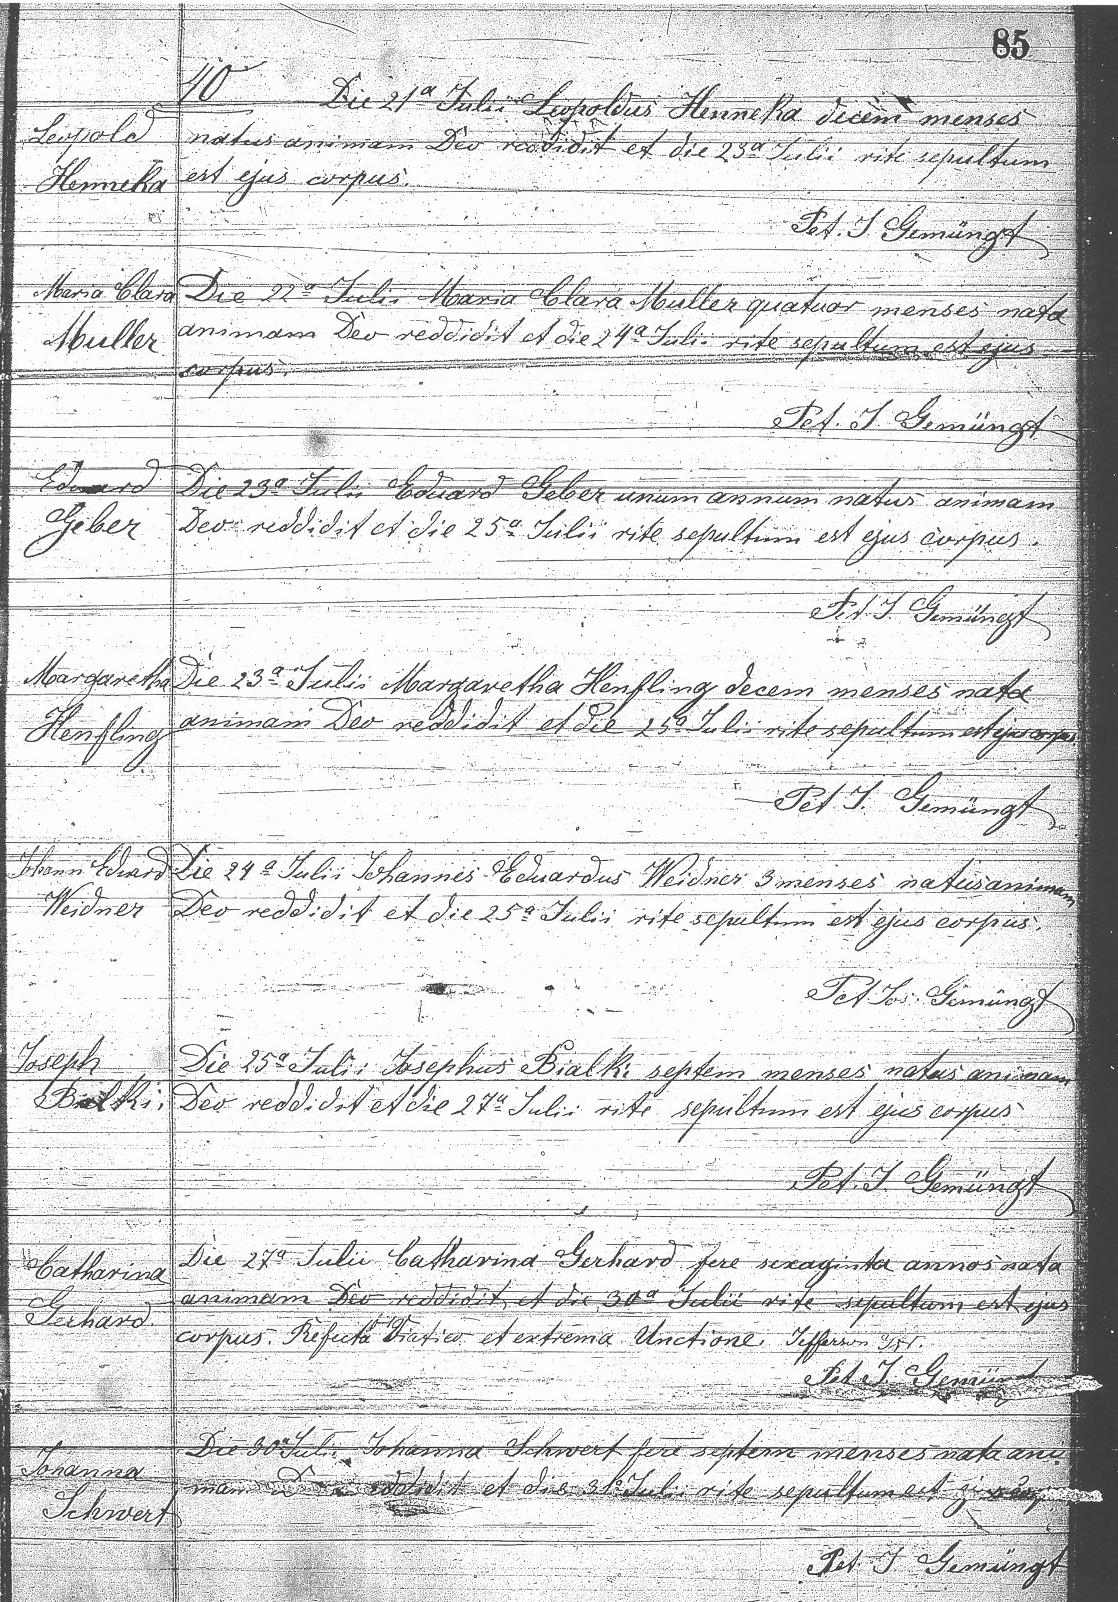 85
40
Leopold
Henneka
Die 21ª Julii Leopoldus Henneka decem menses
natus animam Deo reddidit et die 23ª Julii rite sepultum
est ejus corpus.
Pet. J Gemüngt
Maria Clara
Muller
Die 22ª Julii Maria Clara Muller quatuor menses nata
animam Deo reddidit et die 24ª Julii rite sepultum est ejus
corpus.
Pet. J. Gemüngt
Eduard
Geber
Die 23ª Julii Eduard Geber unum annum natus animam
Deo reddidit et die 25ª Julii rite sepultum est ejus corpus.
Pet. J. Gemüngt
Margaretha
Henfling
Die 23ª Julii Margaretha Henfling decem menses nata
animam Deo reddidit et die 25ª Julii rite sepultum est ejus corpus
Pet J. Gemüngt
Johann Eduard
Weidner
Die 24ª Julii Johannes Eduardus Weidner 3 menses natus animam
Deo reddidit et die 25ª Julii rite sepultum est ejus corpus.
Pet Jos. Gemüngt
Joseph
Bialki.
Die 25ª Julii Josephus Bialki septem menses natus animam
Deo reddidit et die 27ª Julii rite sepultum est ejus corpus
Pet. J. Gemüngt
Catharina
Gerhard
Die 27ª Julii Catharina Gerhard fere sexaginta annos nata
animam Deo reddidit et die 30ª Julii rite sepultum est ejus
corpus. Refecta Viatico et extrema Unctione. Jefferson
Pet J. Gemüngt
Johanna
Schwert
Die 30ª Julii Johanna Schwert fere septem menses nata ani
mam Deo reddidit et die 31ª Julii rite sepultum est
Pet J Gemüngt